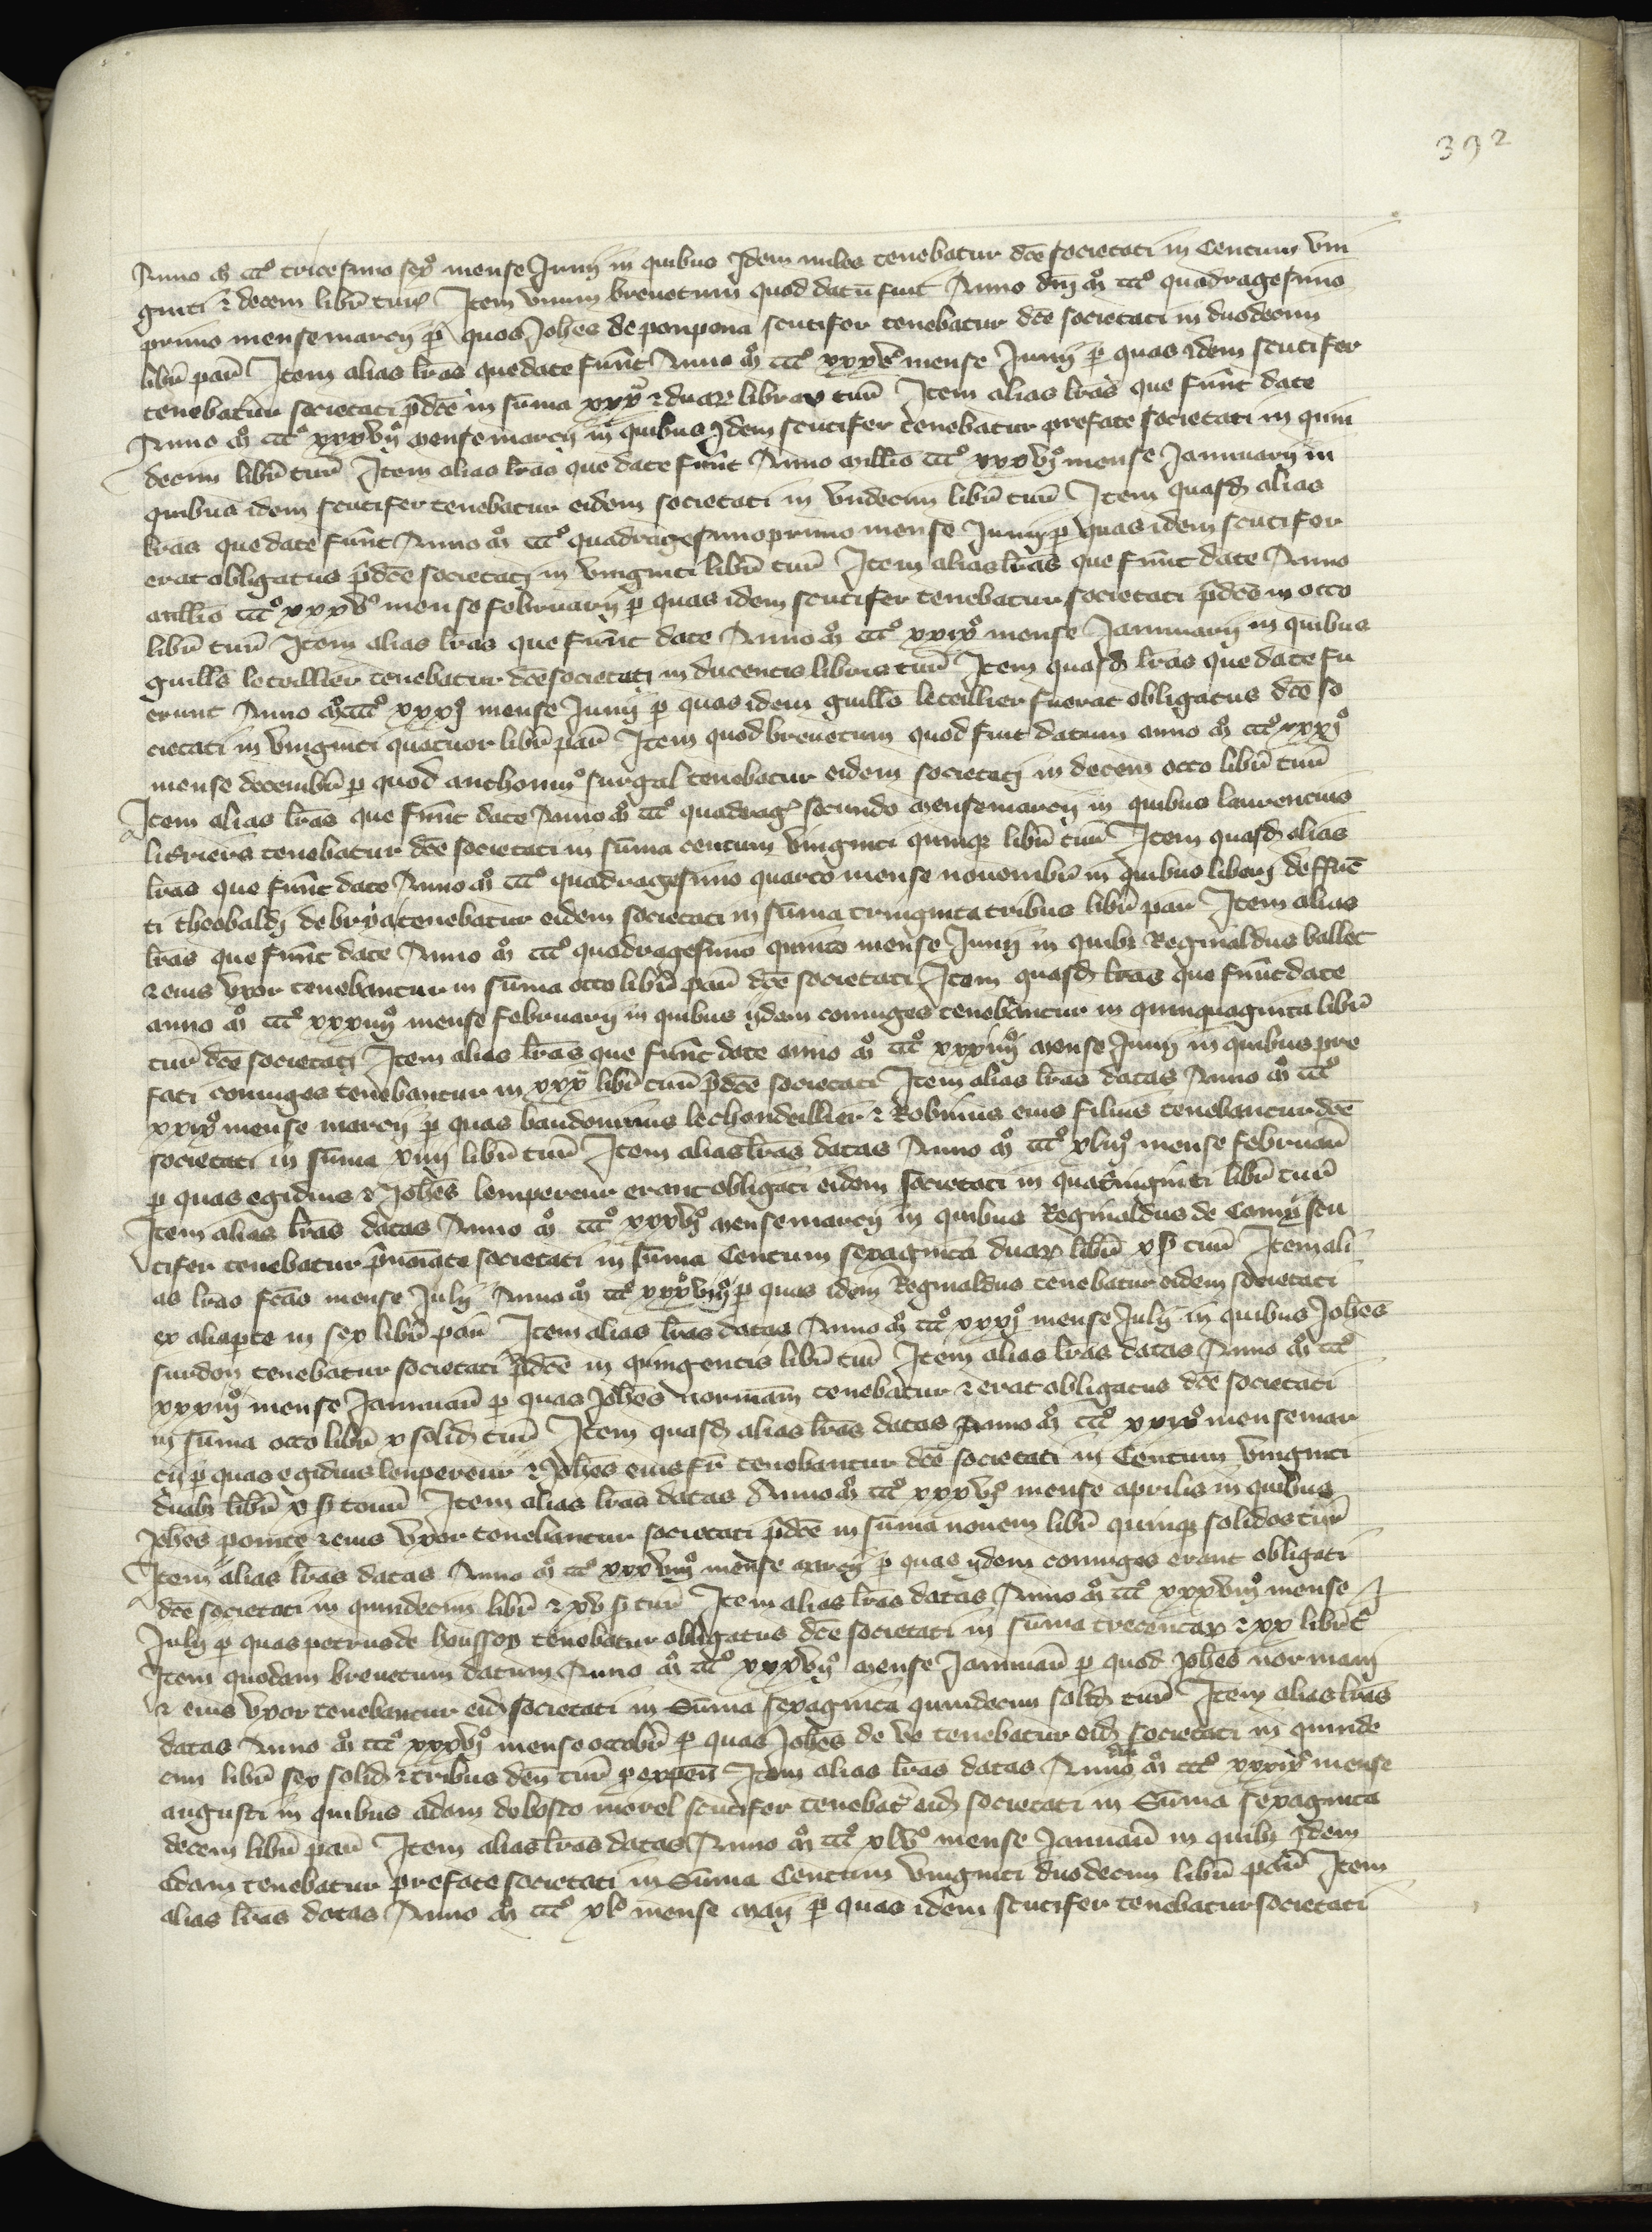 392
Anno mº cccº tricesimo sexº mense Junij in quibus Idem miles tenebatur dcē societati in Centum vin
ginti & decem libr̄ tur̄ Item vnum breuetum quod datū fuit Anno dnī mº cccº quadragesimo
primo mense marcij p̄ quos Johēs de ponpona scutifer tenebatur dcē societati in duodecim
libr̄ par̄ Item alias lrās que date fuūt Anno mº cccº mense Junij p̄ quas idem scutifer
tenebatur societati p̄dcē in sūma xxxᵃ & duaꝝ libraꝝ tur̄ Item alias lrās que fuūt date
Anno mº cccº xxxvijº mense marcij in quibus Idem scutifer tenebatur prefate societati in quin
decim libr̄ tur̄ Item alias lrās que date fuūt Anno millō cccº xxxvjº mense Januuarij in
quibus idem scutifer tenebatur eidem societati in vndecim libr̄ tur̄ Item quasd̄ alias
lrās que date fuūt Anno mº cccº quadragesimoprimo mense Junij p̄ quas idem scutifer
erat obligatus p̄dcē societati in vinginti libr̄ tur̄ Item alias lrās que fuūt date Anno
millō cccº xxxvº mense februarij p̄ quas idem scutifer tenebatur societati p̄dcē in octo
libr̄ tur̄ Item alias lrās que fuūt date Anno mº cccº xxixº mense Januuarij in quibus
guillō leteillier tenebatur dcē societati in ducentis libris tur̄ Item quasd̄ lrās que date fu
erunt Anno mºcccº xxxjº mense Junij p̄ quas idem guillō leteillier fuerat obligatus dcē so
cietati in vinginti quatuor libr̄ par̄ Item quod breuetum quod fuit datum anno mº cccº xxxjº
mense decembr̄ p̄ quod anthoniuꝰ surgal tenebatur eidem societati in decem octo libr̄ tur̄
Item alias lrās que fuūt date Anno mº cccº quadraḡ secundo mense marcij in quibus laurencius
tenebatur dcē societati in sūma centum vinginti quinqꝫ libr̄ tur̄ Item quasd̄ alias
lrās que fuūt date Anno mº cccº quadragesimo quarto mense nouembr̄ in quibus liberj deffūc
ti theobaldj de brya tenebatur eidem societati in sūma tringinta tribus libr̄ par̄ Item alias
lrās que fuūt date Anno mº cccº quadragesimo quinto mense Junij in quibꝫ Reginaldus vallet
& eius vxor tenebantur in sūma octo libr̄ par̄ dcē societati Item quasd̄ lrās que fuūt date
anno mº cccº xxxiiijº mense februarij in quibus ijdem coniuges tenebantur in quinquaginta libr̄
tur̄ dcē societati Item alias lrās que fuūt date anno mº cccº xxxiiijº mense Junij in quibus pre
fati coniuges tenebantur in xxxᵃ libr̄ tur̄ p̄dcē societati Item alias lrās datas Anno mº cccº
xxixº mense marcij p̄ quas baudouinus lechandeillier & Robinus eius filius tenebantur dcē
societati in sūma xiiij libr̄ tur̄ Item alias lrās datas Anno mº cccº xliijº mense februar̄
p̄ quas egidius & Johēs lempereur erant obligati eidem societati in quatruinginti libr̄ tur̄
Item alias lrās datas Anno mº cccº xxxvjº mense marcij in quibus Reginaldus de Comyᵃ scu
tifer tenebatur p̄noīate societati in sūma Centum sexaginta duaꝝ libr̄ x s tur̄ Item ali
as lrās fcās mense Julij Anno mº cccº xxxºviijº p̄ quas idem Reginaldus tenebatur eidem societati
ex alia pte in sex libr̄ par̄ Item alias lrās datas Anno mº cccº xxxjº mense Julij in quibus Johēs
surdon tenebatur societati p̄dcē in quingentis libr̄ tur̄ Item alias lrās datas Anno mº cccº
xxxiijº mense Januuar̄ p̄ quas Johēs normam̄ tenebatur & erat obligatus dcē societati
in sūma octo libr̄ x solid̄ tur̄ Item quasd̄ alias lrās datas Anno mº cccº xxixº mense mar
cij p̄ quas egidius lempereur & Johēs eius fr̄ tenebantur dcē societati in Centum vinginti
duabꝫ libr̄ x s tour̄ Item alias lrās datas Anno mº cccº xxxvjº mense aprilis in quibus
Johēs & eius vxor tenebantur societati p̄dcē in sūma nouem libr̄ quinqꝫ solidos tur̄
Item alias lrās datas Anno mº cccº xxxviijº mense marcij p̄ quas ijdem coniuges erant obligati
dcē societati in quindecim libr̄ & xv s tur̄ Item alias lrās datas Anno mº cccº xxxviijº mense
Julij p̄ quas petrus de houssoy tenebatur obligatus dcē societati in sūma trecentaꝝ & xx libr̄ t̄
Item quodam breuetum datum Anno mº cccº xxxvijº mense Januuar̄ p̄ quod Johēs normam̄
& eius vxor tenebantur eid̄ societati in Sūma sexaginta quindecim solid̄ tur̄ Item alias lrās
datas Anno mº cccº xxxvjº mense octobr̄ p̄ quas Johēs de ve tenebatur eid̄ societati in quinde
cim libr̄ sex solid̄ & tribus den̄ tur̄ p̄ expen̄ Item alias lrās datas Anno dnī mº cccº xxxixº mense
augusti in quibus adam de bosco morel scutifer tenebat̄ eid̄ societati in Sūma sexaginta
decem libr̄ par̄ Item alias lrās datas Anno mº cccº xlvº mense Januar̄ in quibꝫ Idem
adam tenebatur prefate societati in Sūma Centum vinginti duodecim libr̄ par̄ Item
alias lrās datas Anno mº cccº xlº mense maij p̄ quas idem scutifer tenebatur societati